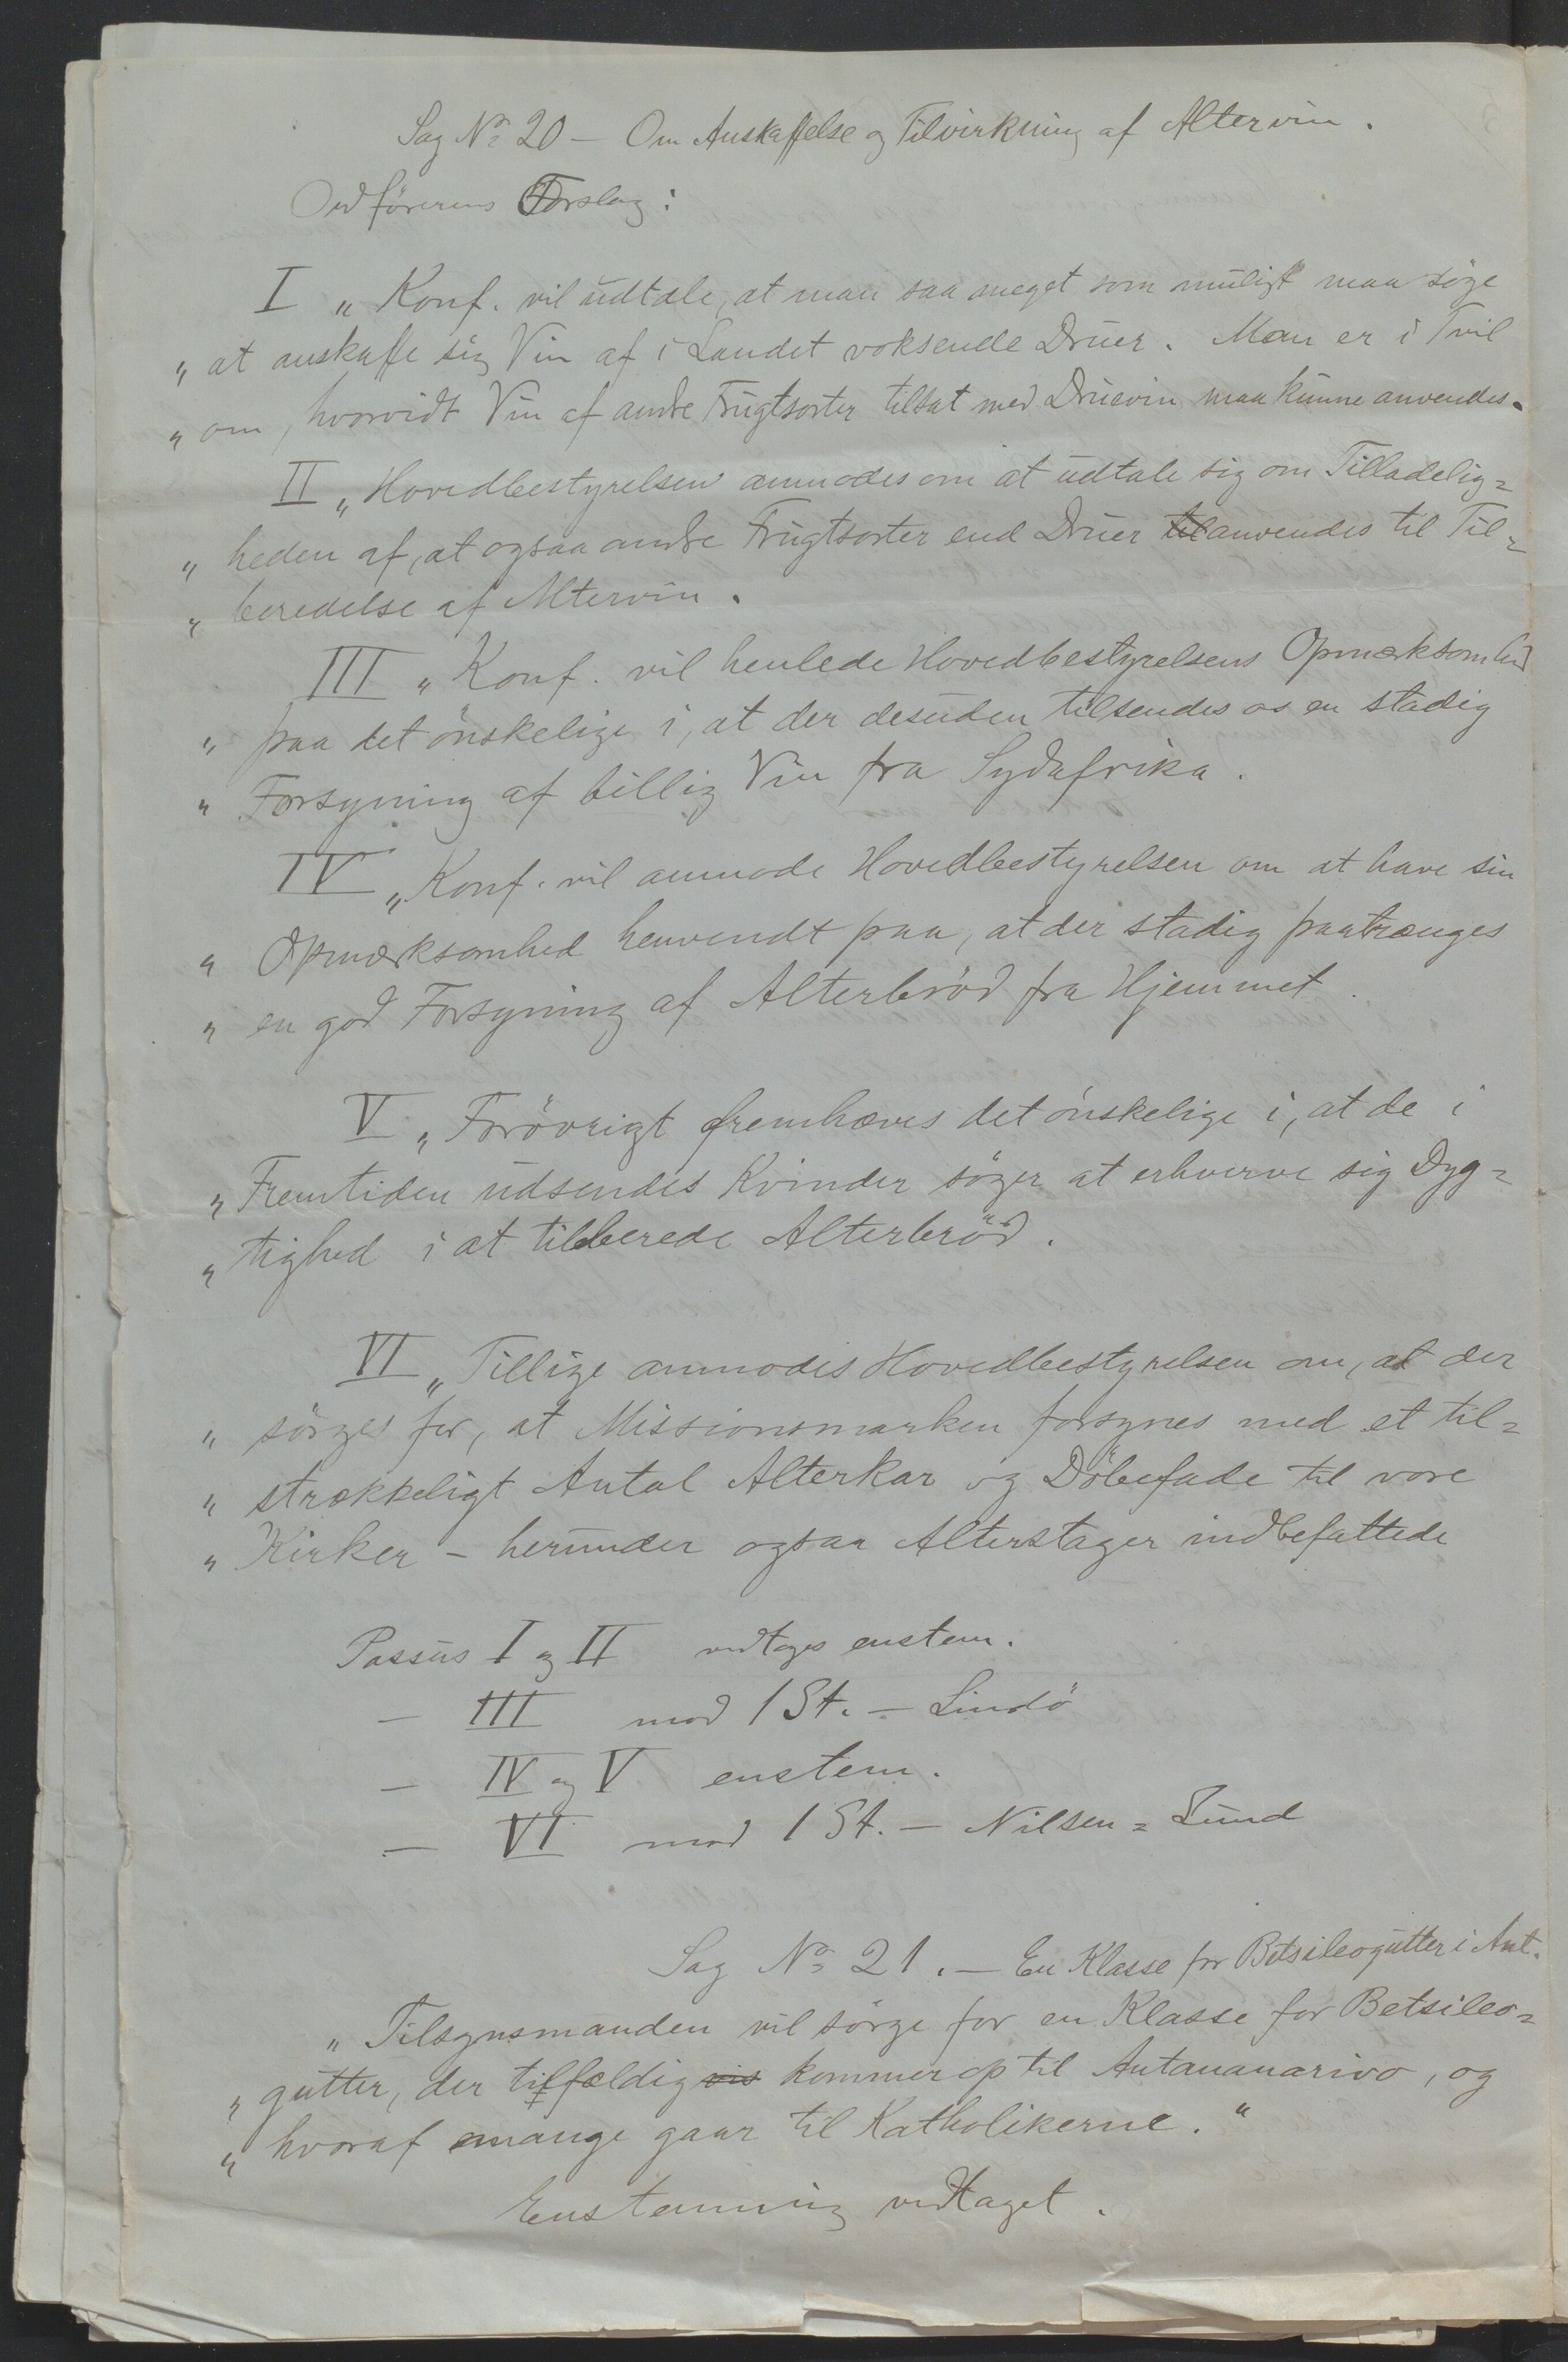 Sag No 20 – Om Anskaffelse og Tilvirkning af Altervin.
Ordförerens Forslag:
I „ Konf. vil udtale, at man saa meget som muligt maa söge
„ at anskaffe sig Vin af i Landet voksende Druer. Man er i Tvil
„ om, hvorvidt Vin af andre Frugtsorter tilsat med Druevin maa kunne anvendes.
II „ Hovedbestyrelsen anmodes om at udtale sig om Tilladelig=
„ heden af, at ogsaa andre Frugtsorter end Druer til anvendes til Til=
„ beredelse af Altervin.
III „ Konf. vil henlede Hovedbestyrelsens Opmærksomhed
„ paa det önskelige i, at der desuden tilsendes os en stadig
„ Forsyning af billig Vin fra Sydafrika.
IV „ Konf. vil anmode Hovedbestyrelsen om at have sin
„ Opmærksomhed henvendt paa, at der stadig paatrænges
„ en god Forsyning af Alterbröd fra Hjemmet.
V „ Forövrigt fremhæves det önskelige i, at de i
„ Fremtiden udsendes Kvinder söger at erhverve sig Dyg=
„ tighed i at tilberede Alterbröd.
VI „ Tillige anmodes Hovedbestyrelsen om, at der
„ sörges for, at Missionsmarken forsynes med et til=
„ strækkeligt Antal Alterkar og Döbefade til vore
„ Kirker – herunder ogsaa Alterstager indbefattede
Passus I og II vedtages enstem.
– III mod 1 St. – Lindö
– IV og V enstem.
– VI mod 1 St. – Nilsen = Lund
Sag No 21. – En Klasse for Betsileogutter i Ant.
„ Tilsynsmanden vil sörge for en Klasse for Betsileo=
„ gutter, der tilfældig vis kommer op til Antananarivo, og
„ hvoraf mange gaar til Katholikerne."
Enstemmig vedtaget.